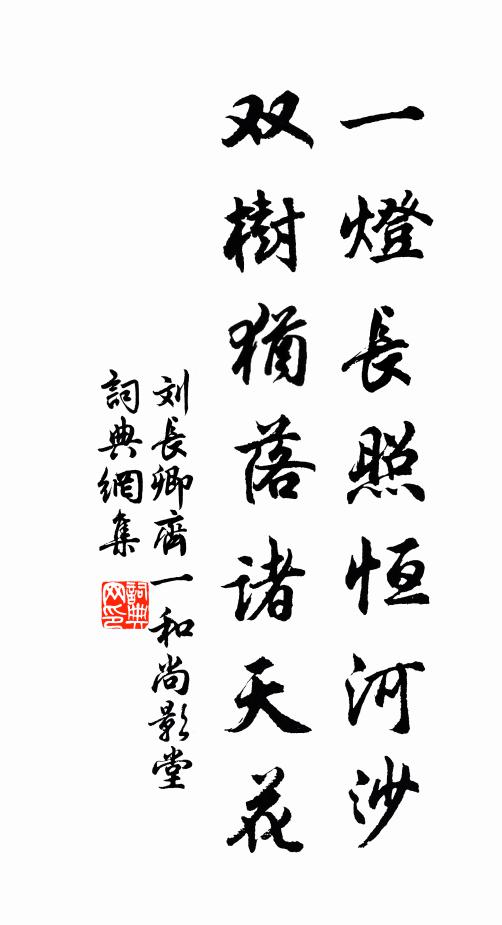 一燈長照恒河沙
双樹猶落諸天花
刘長卿齊一和尚影堂
詞典網集
詞典网印